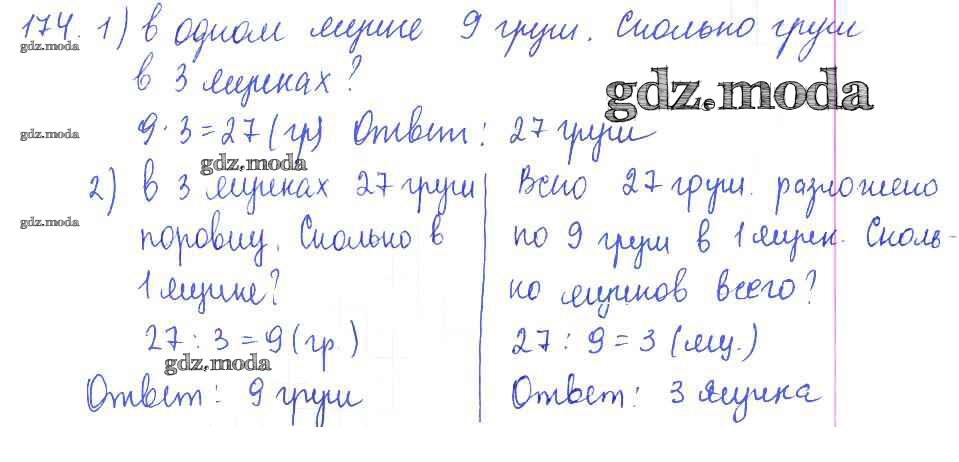 174. 1) в одном ящике 9 груш. Сколько груш
gdz.moda
в 3 ящиках?
gdz.moda
gdz.moda
9 · 3 = 27 (гр) Ответ: 27 груш
gdz.moda
2) в 3 ящиках 27 груш
поровну. Сколько в
1 ящике?
27 : 3 = 9 (гр.)
gdz.moda
Ответ: 9 груш
gdz.moda
Всего 27 груш. разложено
по 9 груш в 1 ящик. Сколь-
ко ящиков всего?
27 : 9 = 3 (ящ.)
Ответ: 3 ящика